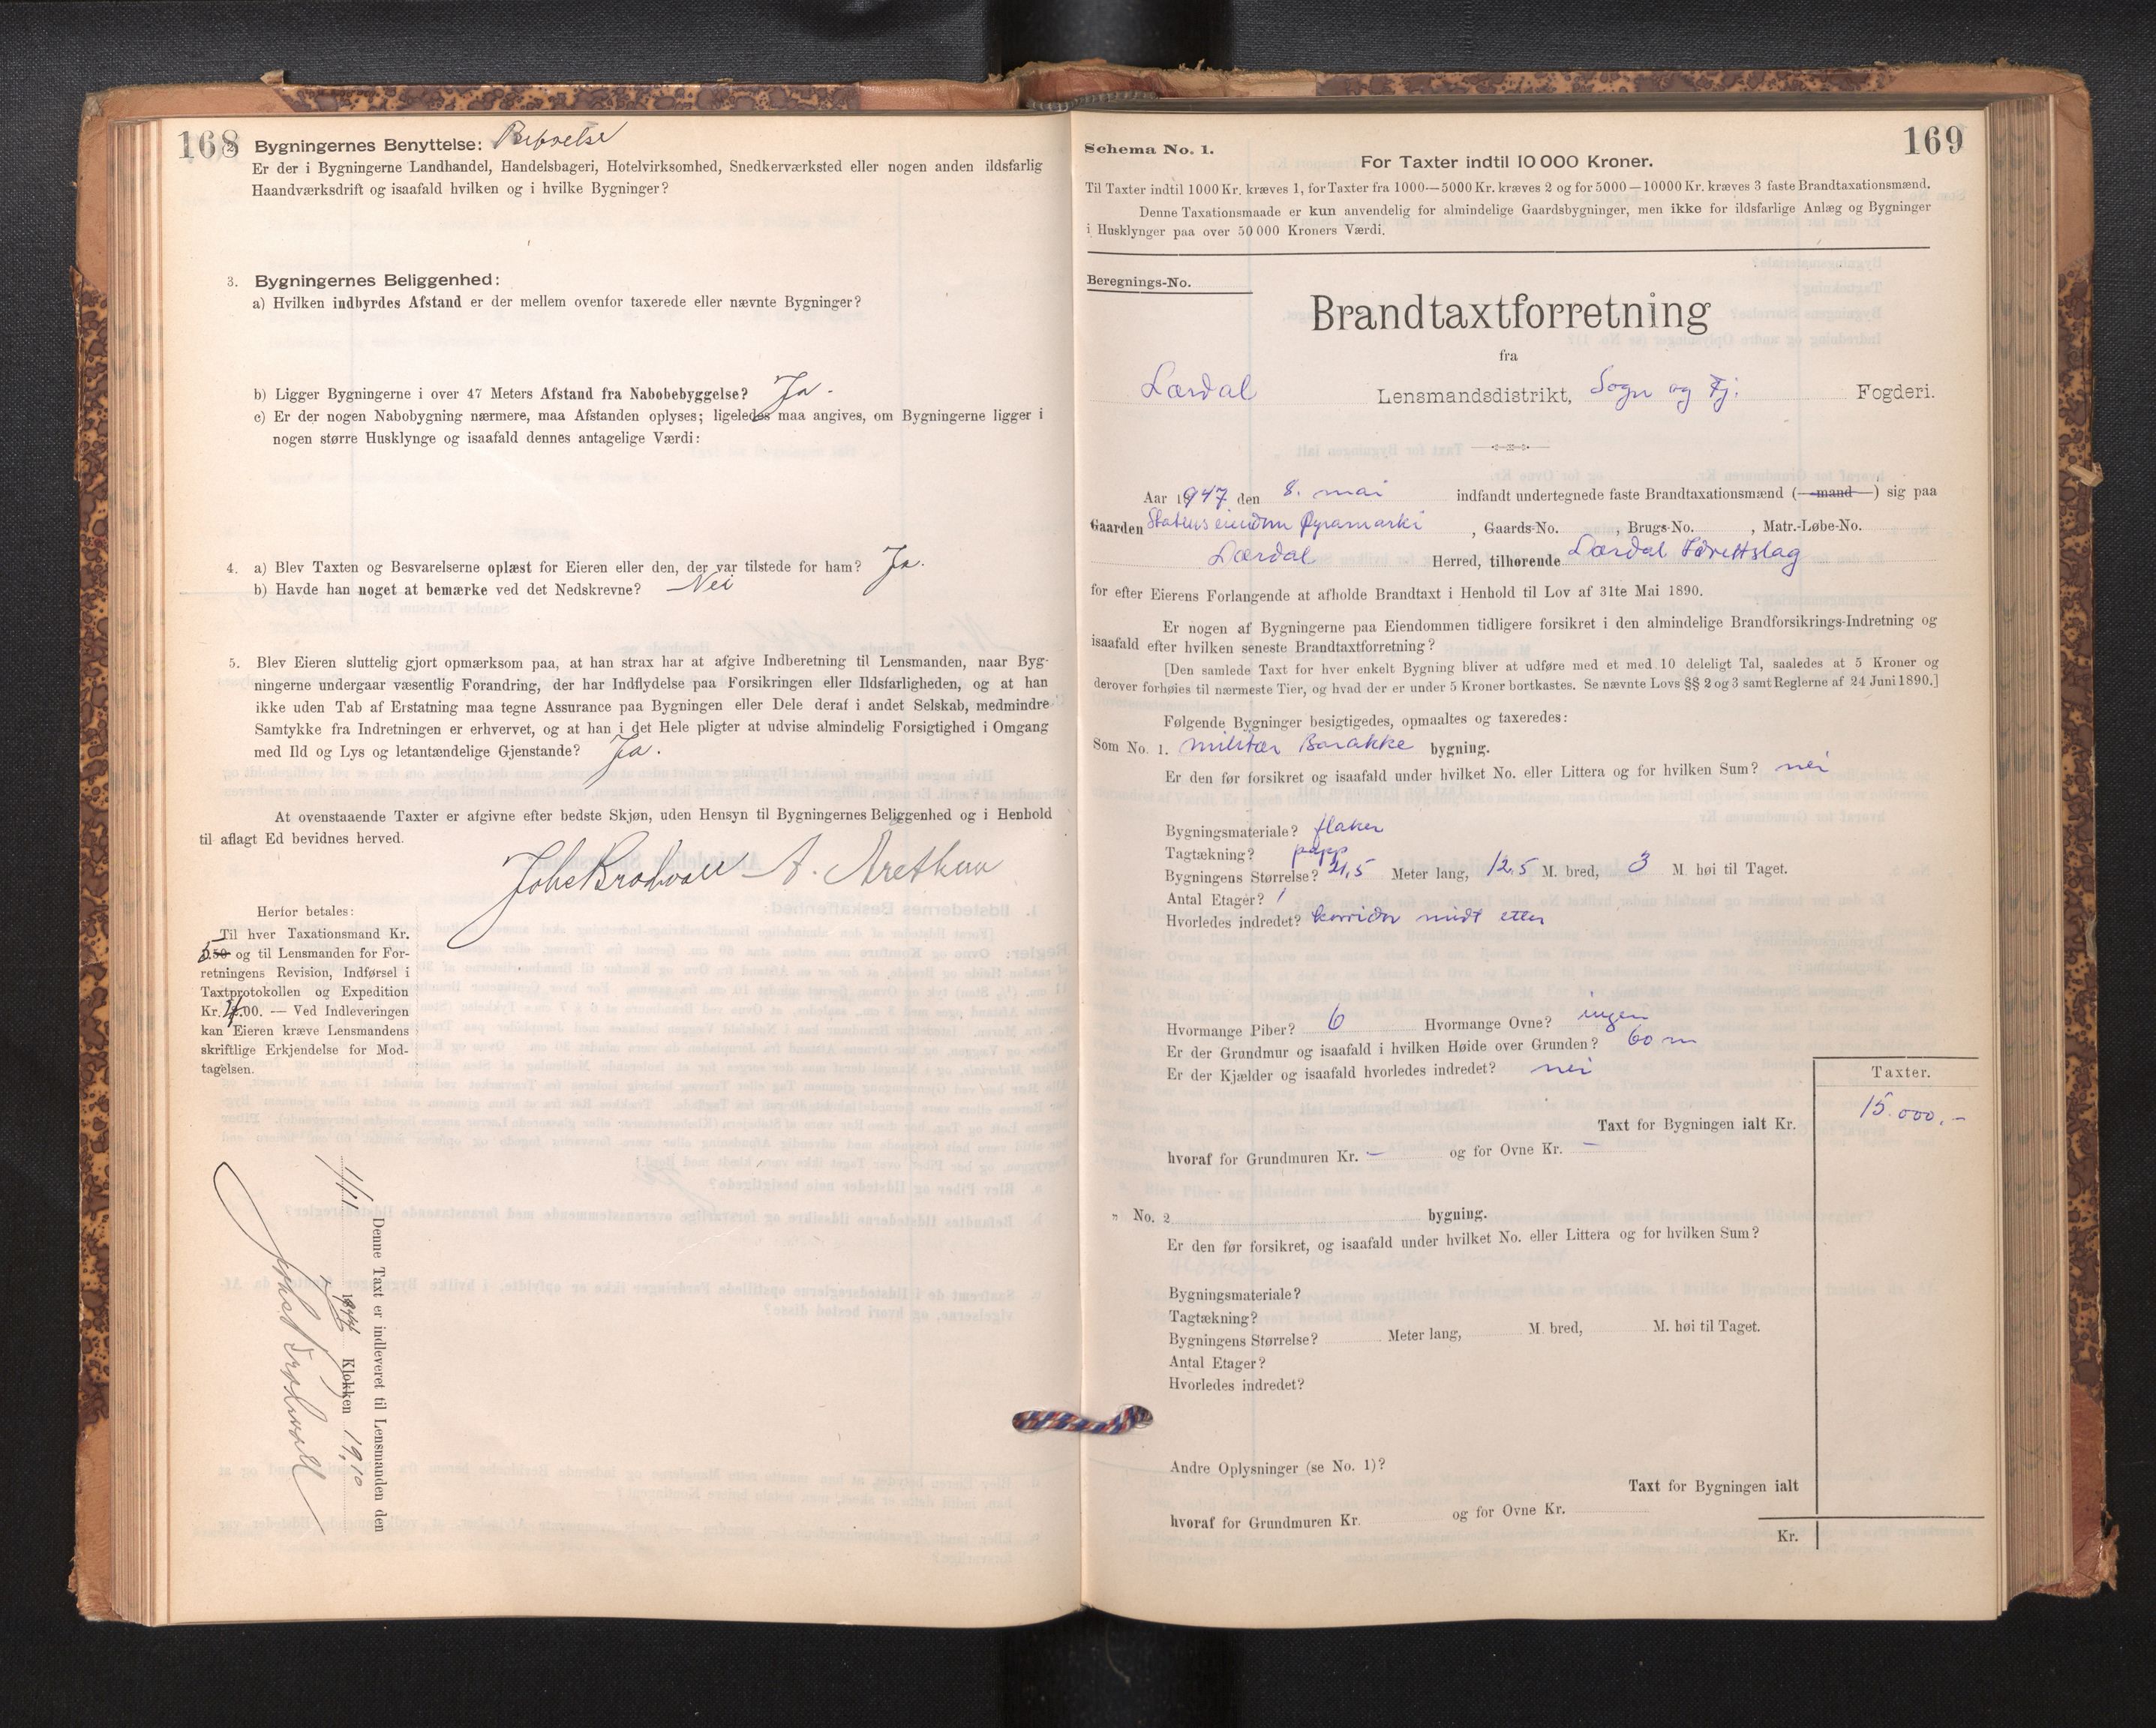 168
2. Bygningernes Benyttelse: Beboelse
Er der i Bygningerne Landhandel, Handelsbageri, Hotelvirksomhed, Snedkerværksted eller nogen anden ildsfarlig
Haandværksdrift og isaafald hvilken og i hvilke Bygninger?
3. Bygningernes Beliggenhed:
a) Hvilken indbyrdes Afstand er der mellem ovenfor taxerede eller nævnte Bygninger?
b) Ligger Bygningerne i over 47 Meters Afstand fra Nabobebyggelse? Ja.
c) Er der nogen Nabobygning nærmere, maa Afstanden oplyses; ligeledes maa angives, om Bygningerne ligger i
nogen større Husklynge og isaafald dennes antagelige Værdi:
4. a) Blev Taxten og Besvarelserne oplæst for Eieren eller den, der var tilstede for ham? Ja.
b) Havde han noget at bemærke ved det Nedskrevne? Nei
5. Blev Eieren sluttelig gjort opmærksom paa, at han strax har at afgive Indberetning til Lensmanden, naar Byg-
ningerne undergaar væsentlig Forandring, der har Indflydelse paa Forsikringen eller Ildsfarligheden, og at han
ikke uden Tab af Erstatning maa tegne Assurance paa Bygningen eller Dele deraf i andet Selskab, medmindre
Samtykke fra Indretningen er erhvervet, og at han i det Hele pligter at udvise almindelig Forsigtighed i Omgang
med Ild og Lys og letantændelige Gjenstande? Ja.
At ovenstaaende Taxter er afgivne efter bedste Skjøn, uden Hensyn til Bygningernes Beliggenhed og i Henhold
til aflagt Ed bevidnes herved.
A.
Herfor betales:
Til hver Taxationsmand Kr.
5 og til Lensmanden for For-
retningens Revision, Indførsel i
Taxtprotokollen og Expedition
Kr. 4.00. — Ved Indleveringen
kan Eieren kræve Lensmandens
skriftlige Erkjendelse for Mod-
tagelsen.
Denne Taxt er indleveret til Lensmanden den
1/11 1947 Klokken 19,10
169
Schema No. 1.
For Taxter indtil 10 000 Kroner.
Til Taxter indtil 1000 Kr. kræves 1, for Taxter fra 1000—5000 Kr. kræves 2 og for 5000—10000 Kr. kræves 3 faste Brandtaxationsmænd.
Denne Taxationsmaade er kun anvendelig for almindelige Gaardsbygninger, men ikke for ildsfarlige Anlæg og Bygninger
i Husklynger paa over 50 000 Kroners Værdi.
Beregnings-No.
Brandtaxtforretning
fra
Lærdal Lensmandsdistrikt, Sogn og Fj. Fogderi.
Aar 1947 den 8. mai indfandt undertegnede faste Brandtaxationsmænd (mand) sig paa
Gaarden Statens eiendom Øyramarki, Gaards-No. , Brugs-No. , Matr.-Løbe-No.
Lærdal Herred, tilhørende Lærdal Idrettslag
for efter Eierens Forlangende at afholde Brandtaxt i Henhold til Lov af 31te Mai 1890.
Er nogen af Bygningerne paa Eiendommen tidligere forsikret i den almindelige Brandforsikrings-Indretning og
isaafald efter hvilken seneste Brandtaxtforretning?
[Den samlede Taxt for hver enkelt Bygning bliver at udføre med et med 10 deleligt Tal, saaledes at 5 Kroner og
derover forhøies til nærmeste Tier, og hvad der er under 5 Kroner bortkastes. Se nævnte Lovs §§ 2 og 3 samt Reglerne af 24 Juni 1890.]
Følgende Bygninger besigtigedes, opmaaltes og taxeredes:
Som No. 1. militær Barakke bygning.
Er den før forsikret og isaafald under hvilket No. eller Littera og for hvilken Sum? nei
Bygningsmateriale? flaker
Tagtækning? papp
Bygningens Størrelse? 21,5 Meter lang, 12,5 M. bred, 3 M. høi til Taget.
Antal Etager? 1
Hvorledes indredet? korridor midt etter
Hvormange Piber? 6 Hvormange Ovne? ingen
Er der Grundmur og isaafald i hvilken Høide over Grunden? 60 m
Er der Kjælder og isaafald hvorledes indredet? nei
Taxter.
Taxt for Bygningen ialt Kr. 15.000.-
hvoraf for Grundmuren Kr. - og for Ovne Kr. -
„ No. 2 bygning.
Er den før forsikret, og isaafald under hvilket No. eller Littera og for hvilken Sum?
Bygningsmateriale?
Tagtækning?
Bygningens Størrelse? Meter lang, M. bred, M. høi til Taget.
Antal Etager?
Hvorledes indredet?
Andre Oplysninger (se No. 1)?
Taxt for Bygningen ialt
hvoraf for Grundmuren Kr. og for Ovne Kr.
Kr.